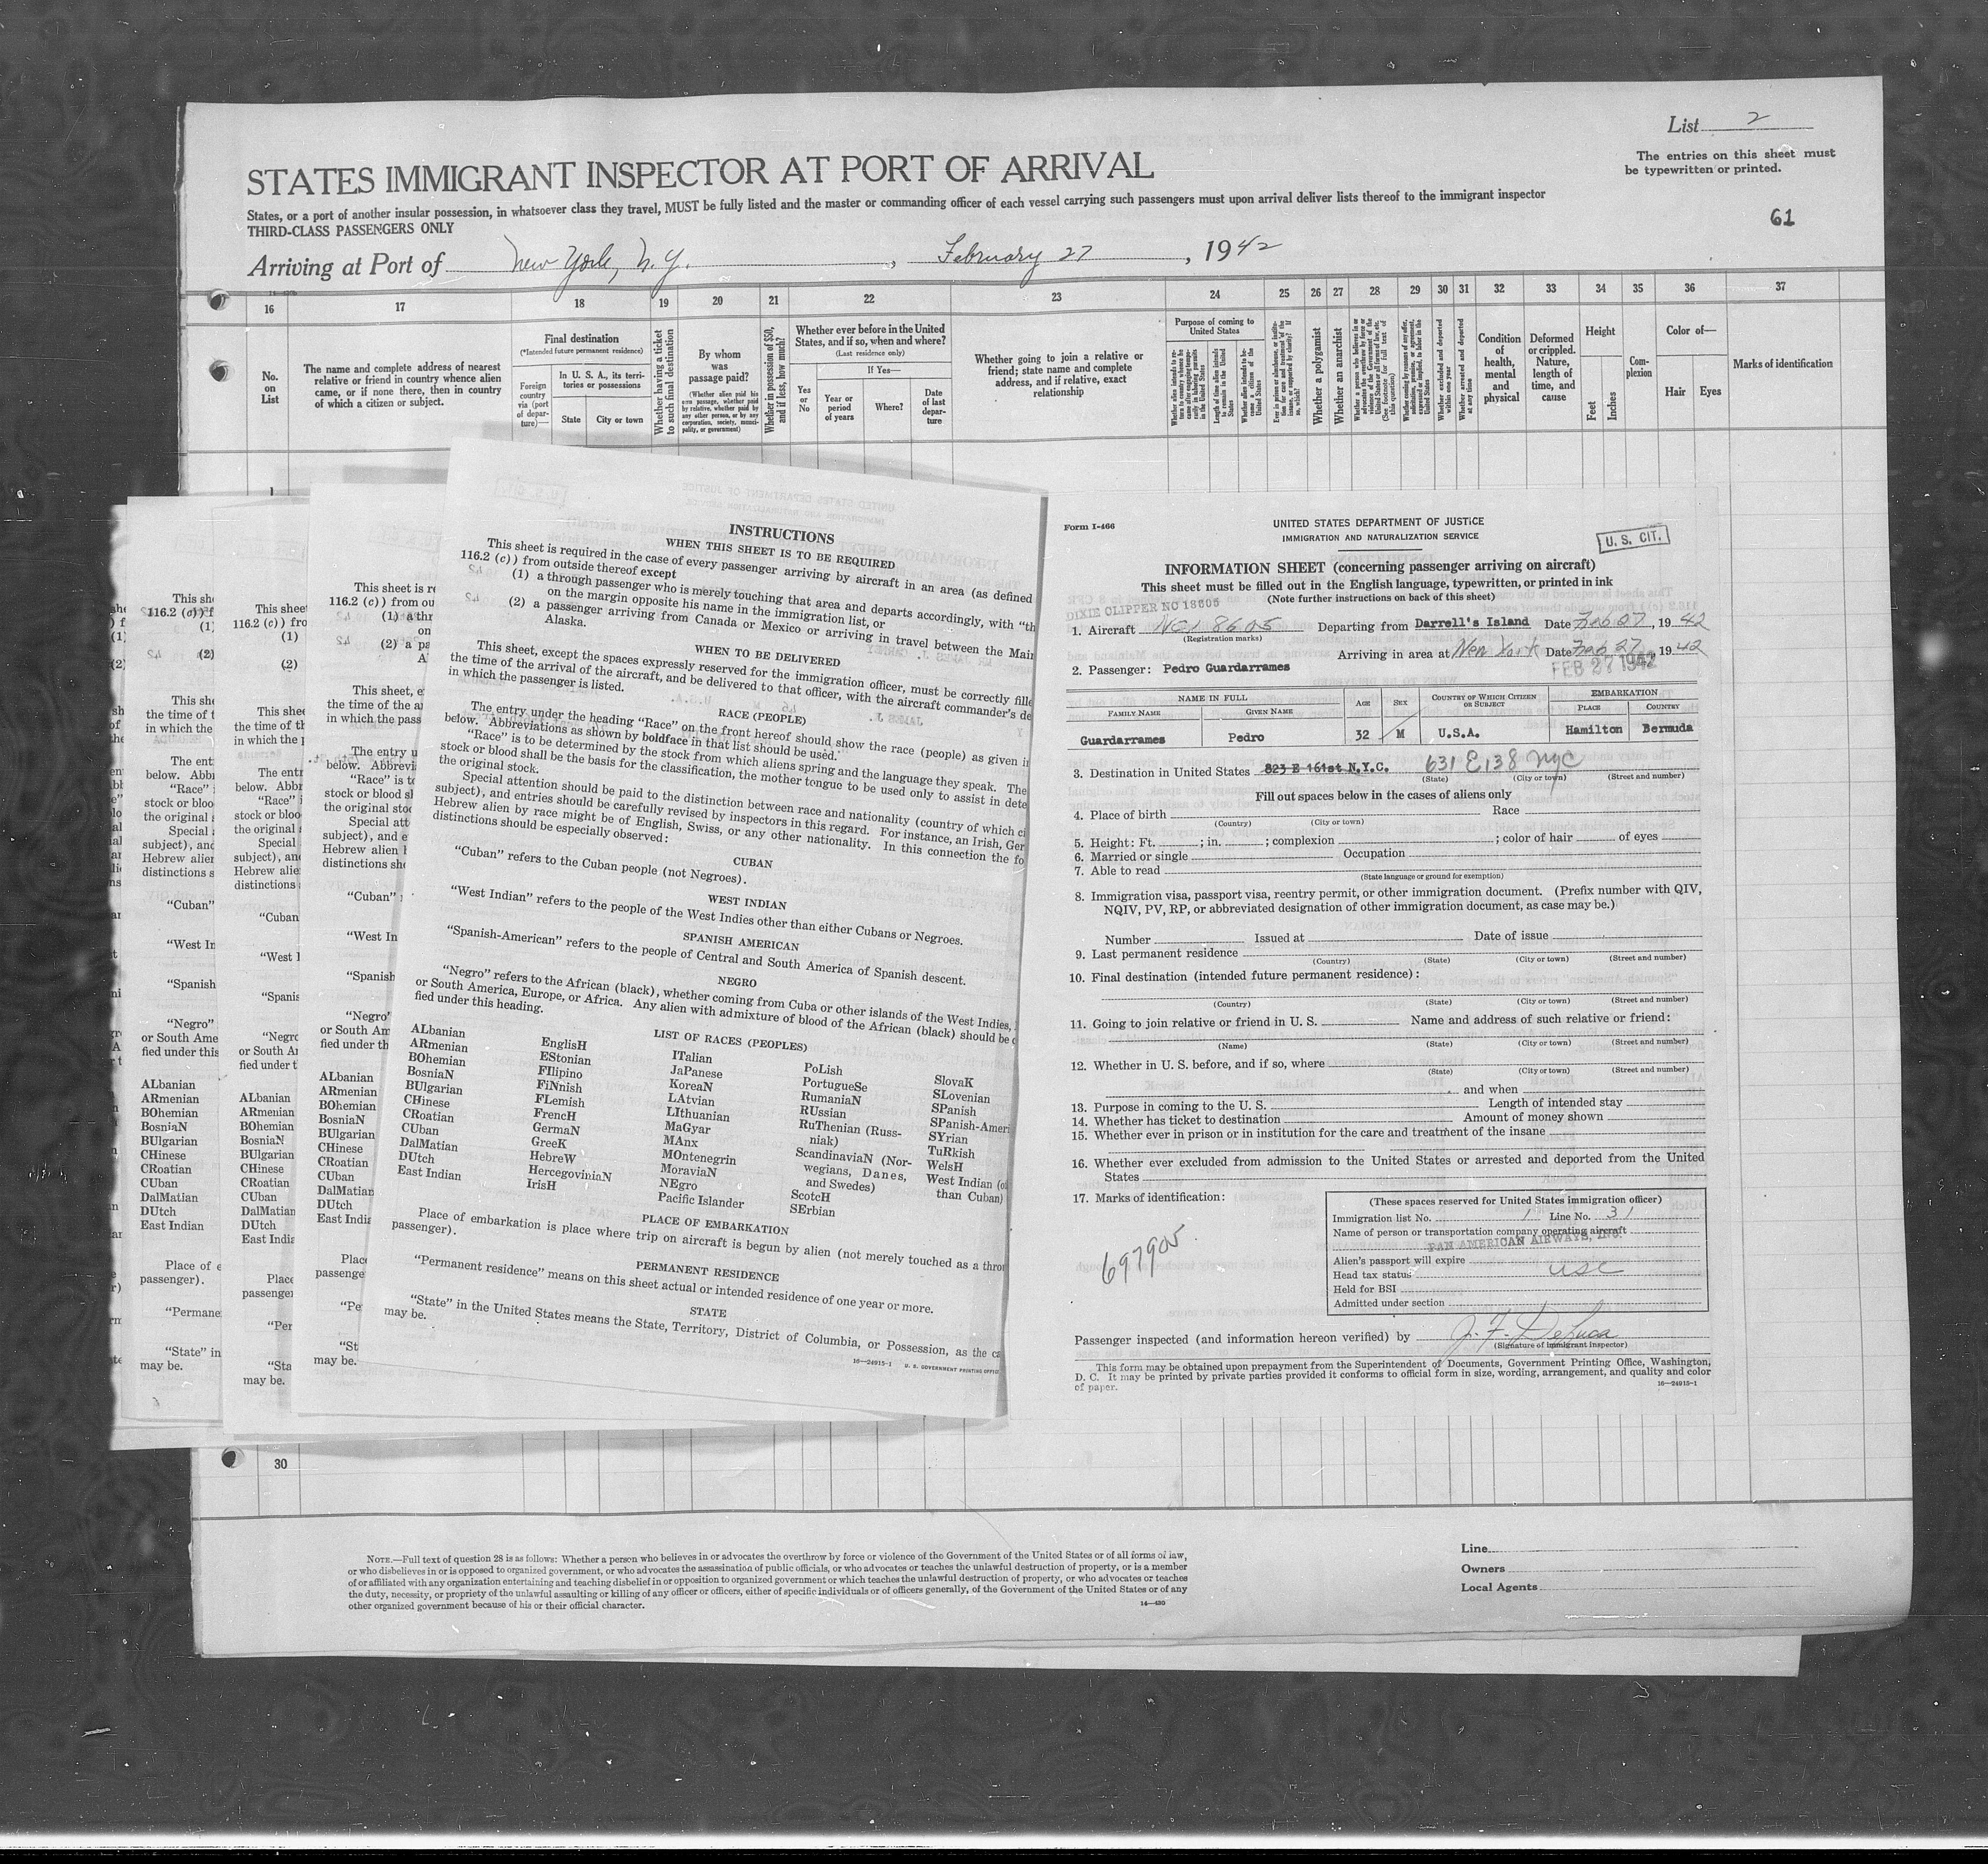 List 2
The entries on this sheet must
be typewritten or printed.
61
STATES IMMIGRANT INSPECTOR AT PORT OF ARRIVAL
States, or a port of another insular possession, in whatsoever class they travel, MUST be fully listed and the master or commanding officer of each vessel carrying such passengers must upon arrival deliver lists thereof to the immigrant inspector
THIRD-CLASS PASSENGERS ONLY
Arriving at Port of New York, N.Y. , February 27 , 1942
16 17 18 19 20 21 22 23 24 25 26 27 28 29 30 31 32 33 34 35 36 37
No.
on
List
The name and complete address of nearest
relative or friend in country whence alien
came, or if none there, then in country
of which a citizen or subject.
Final destination
(*Intended future permanent residence)
Foreign
country
via (port
of depar-
ture)—
In U. S. A., its terri-
tories or possessions
State
City or town
Whether having a ticket
to such final destination
By whom
was
passage paid?
(Whether alien paid his
own passage, whether paid
by relative, whether paid by
any other person, or by any
corporation, society, munici-
pality, or government)
Whether in possession of $50,
and if less, how much?
Whether ever before in the United
States, and if so, when and where?
(Last residence only)
Yes
or
No
If Yes—
Year or
period
of years
Where?
Date
of last
depar-
ture
Whether going to join a relative or
friend; state name and complete
address, and if relative, exact
relationship
Purpose of coming to
United States
Length of time alien intends
to remain in the United
States
Whether alien intends to be-
come a citizen of the
United States
Whether a polygamist
Whether an anarchist
Whether excluded and deported
within one year
Whether arrested and deported
at any time
Condition
of
health,
mental
and
physical
Deformed
or crippled.
Nature,
length of
time, and
cause
Height
Feet
Inches
Com-
plexion
Color of—
Hair
Eyes
Marks of identification
INSTRUCTIONS
WHEN THIS SHEET IS TO BE REQUIRED
This sheet is required in the case of every passenger arriving by aircraft in an area (as defined
116.2 (c)) from outside thereof except
(1) a through passenger who is merely touching that area and departs accordingly, with "th
on the margin opposite his name in the immigration list, or
(2) a passenger arriving from Canada or Mexico or arriving in travel between the Main
Alaska.
WHEN TO BE DELIVERED
This sheet, except the spaces expressly reserved for the immigration officer, must be correctly fille
the time of the arrival of the aircraft, and be delivered to that officer, with the aircraft commander's de
in which the passenger is listed.
RACE (PEOPLE)
The entry under the heading "Race" on the front hereof should show the race (people) as given i
below. Abbreviations as shown by boldface in that list should be used.
"Race" is to be determined by the stock from which aliens spring and the language they speak. The
stock or blood shall be the basis for the classification, the mother tongue to be used only to assist in dete
the original stock.
Special attention should be paid to the distinction between race and nationality (country of which ci
subject), and entries should be carefully revised by inspectors in this regard. For instance, an Irish, Ger
Hebrew alien by race might be of English, Swiss, or any other nationality. In this connection the fo
distinctions should be especially observed:
CUBAN
"Cuban" refers to the Cuban people (not Negroes).
WEST INDIAN
"West Indian" refers to the people of the West Indies other than either Cubans or Negroes.
SPANISH AMERICAN
"Spanish-American" refers to the people of Central and South America of Spanish descent.
NEGRO
"Negro" refers to the African (black), whether coming from Cuba or other islands of the West Indies,
or South America, Europe, or Africa. Any alien with admixture of blood of the African (black) should be c
fied under this heading.
LIST OF RACES (PEOPLES)
ALbanian
ARmenian
BOhemian
BosniaN
BUlgarian
CHinese
CRoatian
CUban
DalMatian
DUtch
East Indian
EnglisH
EStonian
FIlipino
FiNnish
FLemish
FrencH
GermaN
GreeK
HebreW
HercegoviniaN
IrisH
ITalian
JaPanese
KoreaN
LAtvian
LIthuanian
MaGyar
MAnx
MOntenegrin
MoraviaN
NEgro
Pacific Islander
PoLish
PortugueSe
RumaniaN
RUssian
RuThenian (Russ-
niak)
ScandinaviaN (Nor-
wegians, Danes,
and Swedes)
ScotcH
SErbian
SlovaK
SLovenian
SPanish
SPanish-Ameri
SYrian
TuRkish
WelsH
West Indian (o
than Cuban)
PLACE OF EMBARKATION
Place of embarkation is place where trip on aircraft is begun by alien (not merely touched as a thro
passenger).
PERMANENT RESIDENCE
"Permanent residence" means on this sheet actual or intended residence of one year or more.
STATE
"State" in the United States means the State, Territory, District of Columbia, or Possession, as the ca
may be.
16—24915-1 U. S. GOVERNMENT PRINTING OFFIC
Form I-466
UNITED STATES DEPARTMENT OF JUSTICE
IMMIGRATION AND NATURALIZATION SERVICE
U. S. CIT.
INFORMATION SHEET (concerning passenger arriving on aircraft)
This sheet must be filled out in the English language, typewritten, or printed in ink
(Note further instructions on back of this sheet)
DIXIE CLIPPER NC 18605
1. Aircraft NC18605 Departing from Darrell's Island Date Feb 27, 1942
(Registration marks)
Arriving in area at New York Date Feb 27, 1942
FEB 27 1942
2. Passenger: Pedro Guardarrames
NAME IN FULL
FAMILY NAME
GIVEN NAME
AGE
SEX
COUNTRY OF WHICH CITIZEN
OR SUBJECT
EMBARKATION
PLACE
COUNTRY
Guardarrames Pedro 32 M U.S.A. Hamilton Bermuda
3. Destination in United States 823 E 161st N.Y.C. 631 E 138 NYC
(State) (City or town) (Street and number)
Fill out spaces below in the cases of aliens only
4. Place of birth Race
(Country) (City or town)
5. Height: Ft. ; in. ; complexion ; color of hair of eyes
6. Married or single Occupation
7. Able to read
(State language or ground for exemption)
8. Immigration visa, passport visa, reentry permit, or other immigration document. (Prefix number with QIV,
NQIV, PV, RP, or abbreviated designation of other immigration document, as case may be.)
Number Issued at Date of issue
9. Last permanent residence
(Country) (State) (City or town) (Street and number)
10. Final destination (intended future permanent residence):
(Country) (State) (City or town) (Street and number)
11. Going to join relative or friend in U. S. Name and address of such relative or friend:
(Name) (State) (City or town) (Street and number)
12. Whether in U. S. before, and if so, where
(State) (City or town) (Street and number)
and when
13. Purpose in coming to the U. S. Length of intended stay
14. Whether has ticket to destination Amount of money shown
15. Whether ever in prison or in institution for the care and treatment of the insane
16. Whether ever excluded from admission to the United States or arrested and deported from the United
States
17. Marks of identification:
697905
(These spaces reserved for United States immigration officer)
Immigration list No. 1 Line No. 31
Name of person or transportation company operating aircraft
PAN AMERICAN AIRWAYS, INC.
Alien's passport will expire
Head tax status USC
Held for BSI
Admitted under section
Passenger inspected (and information hereon verified) by J. F. DeLuca
(Signature of immigrant inspector)
This form may be obtained upon prepayment from the Superintendent of Documents, Government Printing Office, Washington,
D. C. It may be printed by private parties provided it conforms to official form in size, wording, arrangement, and quality and color
of paper.
16—24915-1
30
NOTE.—Full text of question 28 is as follows: Whether a person who believes in or advocates the overthrow by force or violence of the Government of the United States or of all forms of law,
or who disbelieves in or is opposed to organized government, or who advocates the assassination of public officials, or who advocates or teaches the unlawful destruction of property, or is a member
of or affiliated with any organization entertaining and teaching disbelief in or opposition to organized government or which teaches the unlawful destruction of property, or who advocates or teaches
the duty, necessity, or propriety of the unlawful assaulting or killing of any officer or officers, either of specific individuals or of officers generally, of the Government of the United States or of any
other organized government because of his or their official character.
14—430
Line
Owners
Local Agents